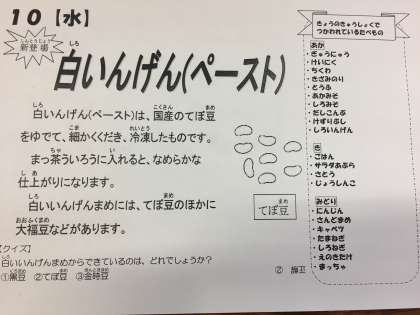 10【水】
新登場
しんとうじょう
白いんげん(ペースト)
しろ
白いんげん(ペースト)は、国産のてぼ豆
をゆでて、細かくくだき、冷凍したものです。
まっ茶ういろうに入れると、なめらかな
仕上がりになります。
白いいんげんまめには、てぼ豆のほかに
大福豆などがあります。
おおふくまめ
てぼ豆
【クイズ】
白いんげんまめからできているのは、どれでしょうか?
①黒豆 ②てぼ豆 ③金時豆
きょうのきゅうしょくで
つかわれているたべもの
あか
・ぎゅうにゅう
・けいにく
・ちくわ
・きざみのり
・とうふ
・あかみそ
・しろみそ
・だしこんぶ
・けずりぶし
・しろいんげん
き
・ごはん
・サラダあぶら
・さとう
・じょうしんこ
みどり
・にんじん
・さんどまめ
・キャベツ
・たまねぎ
・しろねぎ
・えのきたけ
・まっちゃ